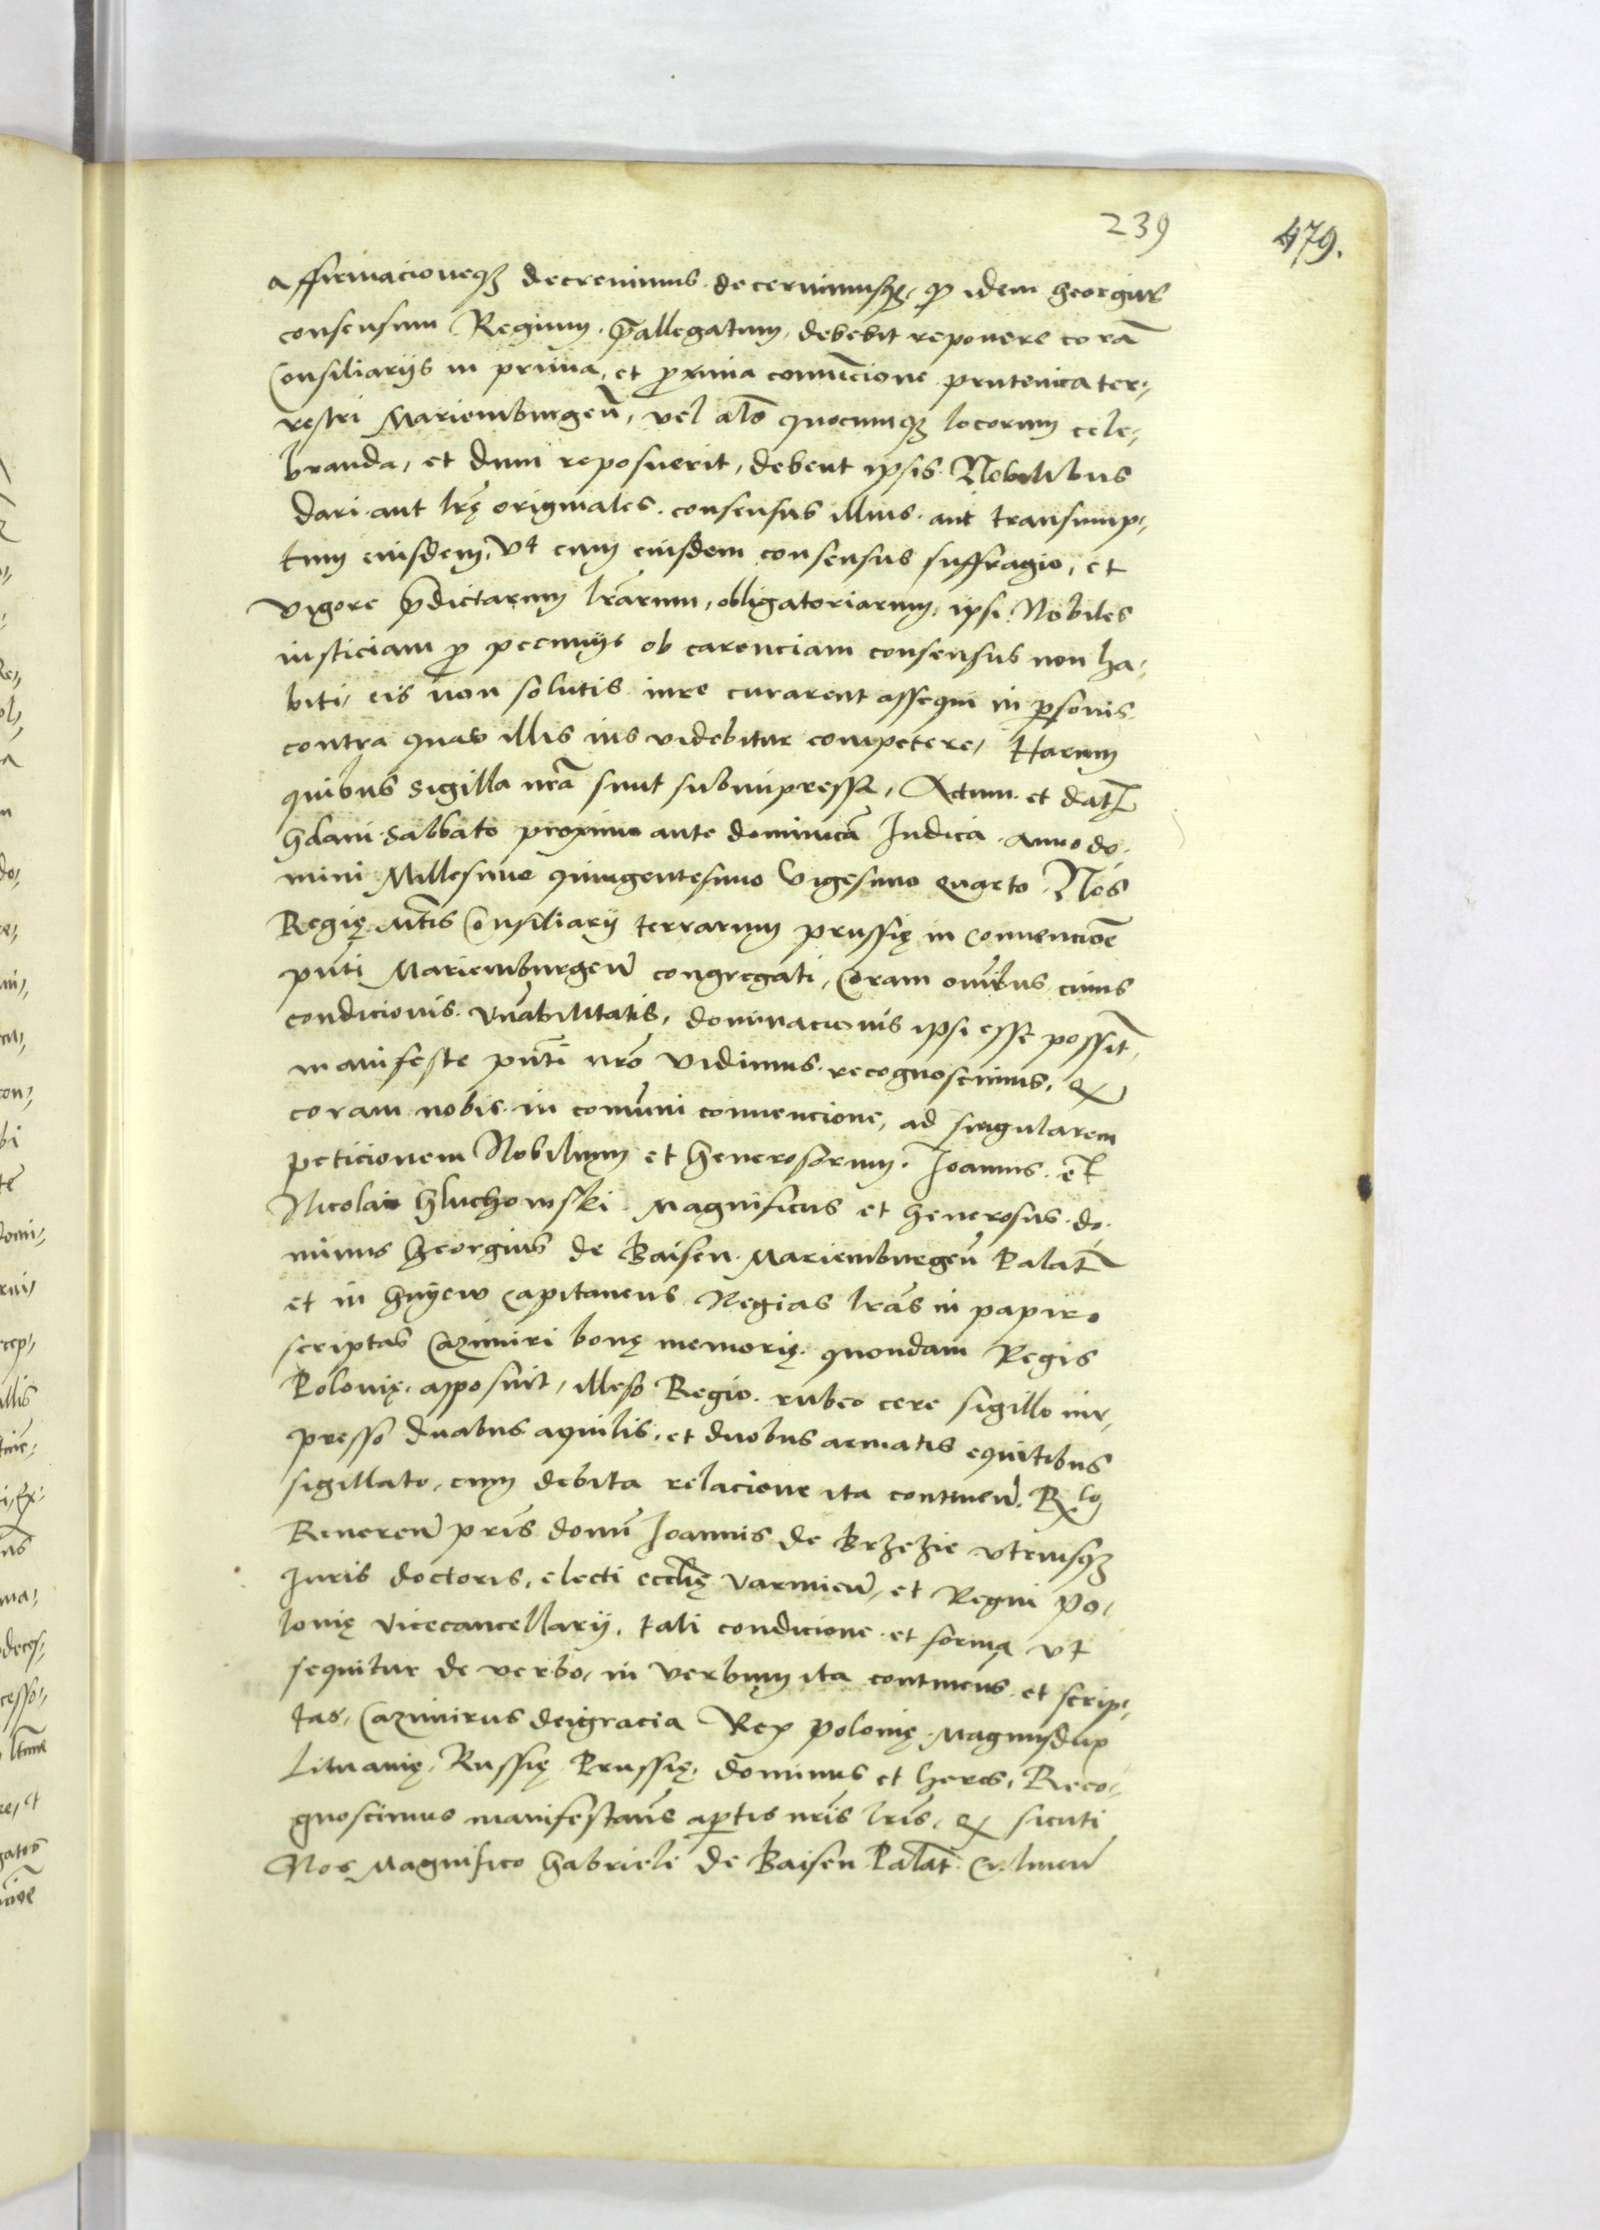 239
479.
affirmacioneqꝫ decrevimus decernimusqꝫ, ꝙ idem Georgius
consensum Regium p̄allegatum, debebit reponere corā
Consiliariis in prima, et ꝓxima convēcione prutenica ter,
restri Mariemburgeñ, vel alō quocumqꝫ locorum cele,
branda, et dum reposuerit, debent ipsis Nobilibus
dari aut lrę̄ originales consensus illius aut transump,
tum eiusdem, ut cum eiusdem consensus suffragio, et
vigore p̄dictarum lrārum, obligatoriarum, ipsi Nobiles
iusticiam ꝓ pecuniis ob carenciam consensus non ha,
biti, eis non solutis iure curarent assequi in ꝑsonis
contra quas illis ius videbitur competere, Harum
quibus sigilla nrā sunt subimpressa, Actum et datꝫ
Gdani Sabbato proximo ante dominicā Iudica Anno do,
mini Millesimo quingentesimo Vigesimo quarto Nos
Regię Mtīs Consiliarii terrarum prussię in convencioē
pn̄ti Mariemburgeñ congregati, Coram om̄ibus cuius
condicionis vn̄abilitatis, dominacionis ipsi esse possīt,
manifeste pn̄ti nr̄o vidimus recognoscimus, ꝙ
coram nobis in com̄uni convencione, ad singularem
peticionem Nobilium et Generosorum Joannis et
Nicolai Gluchowski Magnificus et Generosus do,
minus Georgius de Baisen Mariemburgeñ Palatꝫ
et in Gnyew Capitaneus Regias lrās in papiro
scriptas Cazimiri bonę memorię quondam Regis
Polonię, apposuit, illeso Regio rubeo cere sigillo im,
presso duabus aquilis, et duobus armatis equitibus
sigillato, cum debita relacione ita continen̄. Rlo
Reveren̄ pr̄is domī Joannis de Brzezie utriusqꝫ
Iuris doctoris, electi ecclię̄ Varmien̄, et Regni Po,
lonię vicecancellarii, tali condicione et forma ut
sequitur de verbo, in verbum ita continens et scrip,
tas, Cazimirus dei gracia Rex Polonię Magnus dux
Lituanię, Russię Prussię, dominus et heres, Reco,
gnoscimus manifestan̄s aꝑtis nrīs lrīs, ꝙ sicuti
Nos Magnifico Gabrieli de Baisen Palat̄ Culmen̄